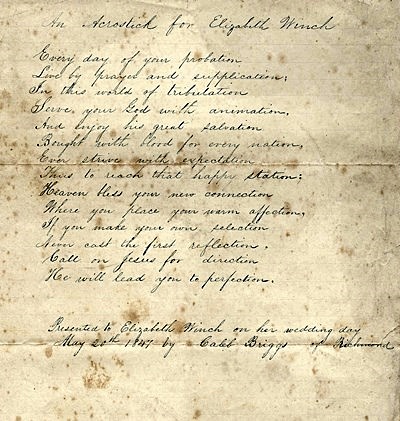 An Acrostick for Elizabeth Winch
Every day of your probation
Live by prayer and supplication;
In this world of tribulation
Serve your God with animation,
And enjoy his great salvation
Bought with blood for every nation,
Ever strive with expectation
Thus to reach that happy station:
Heaven bless your new connection
Where you place your warm affection,
If you make your own selection
Never cast the first reflection.
Call on Jesus for direction
He will lead you to perfection.
Presented to Elizabeth Winch on her wedding day
May 20th 1847 by Caleb Briggs of Richmond